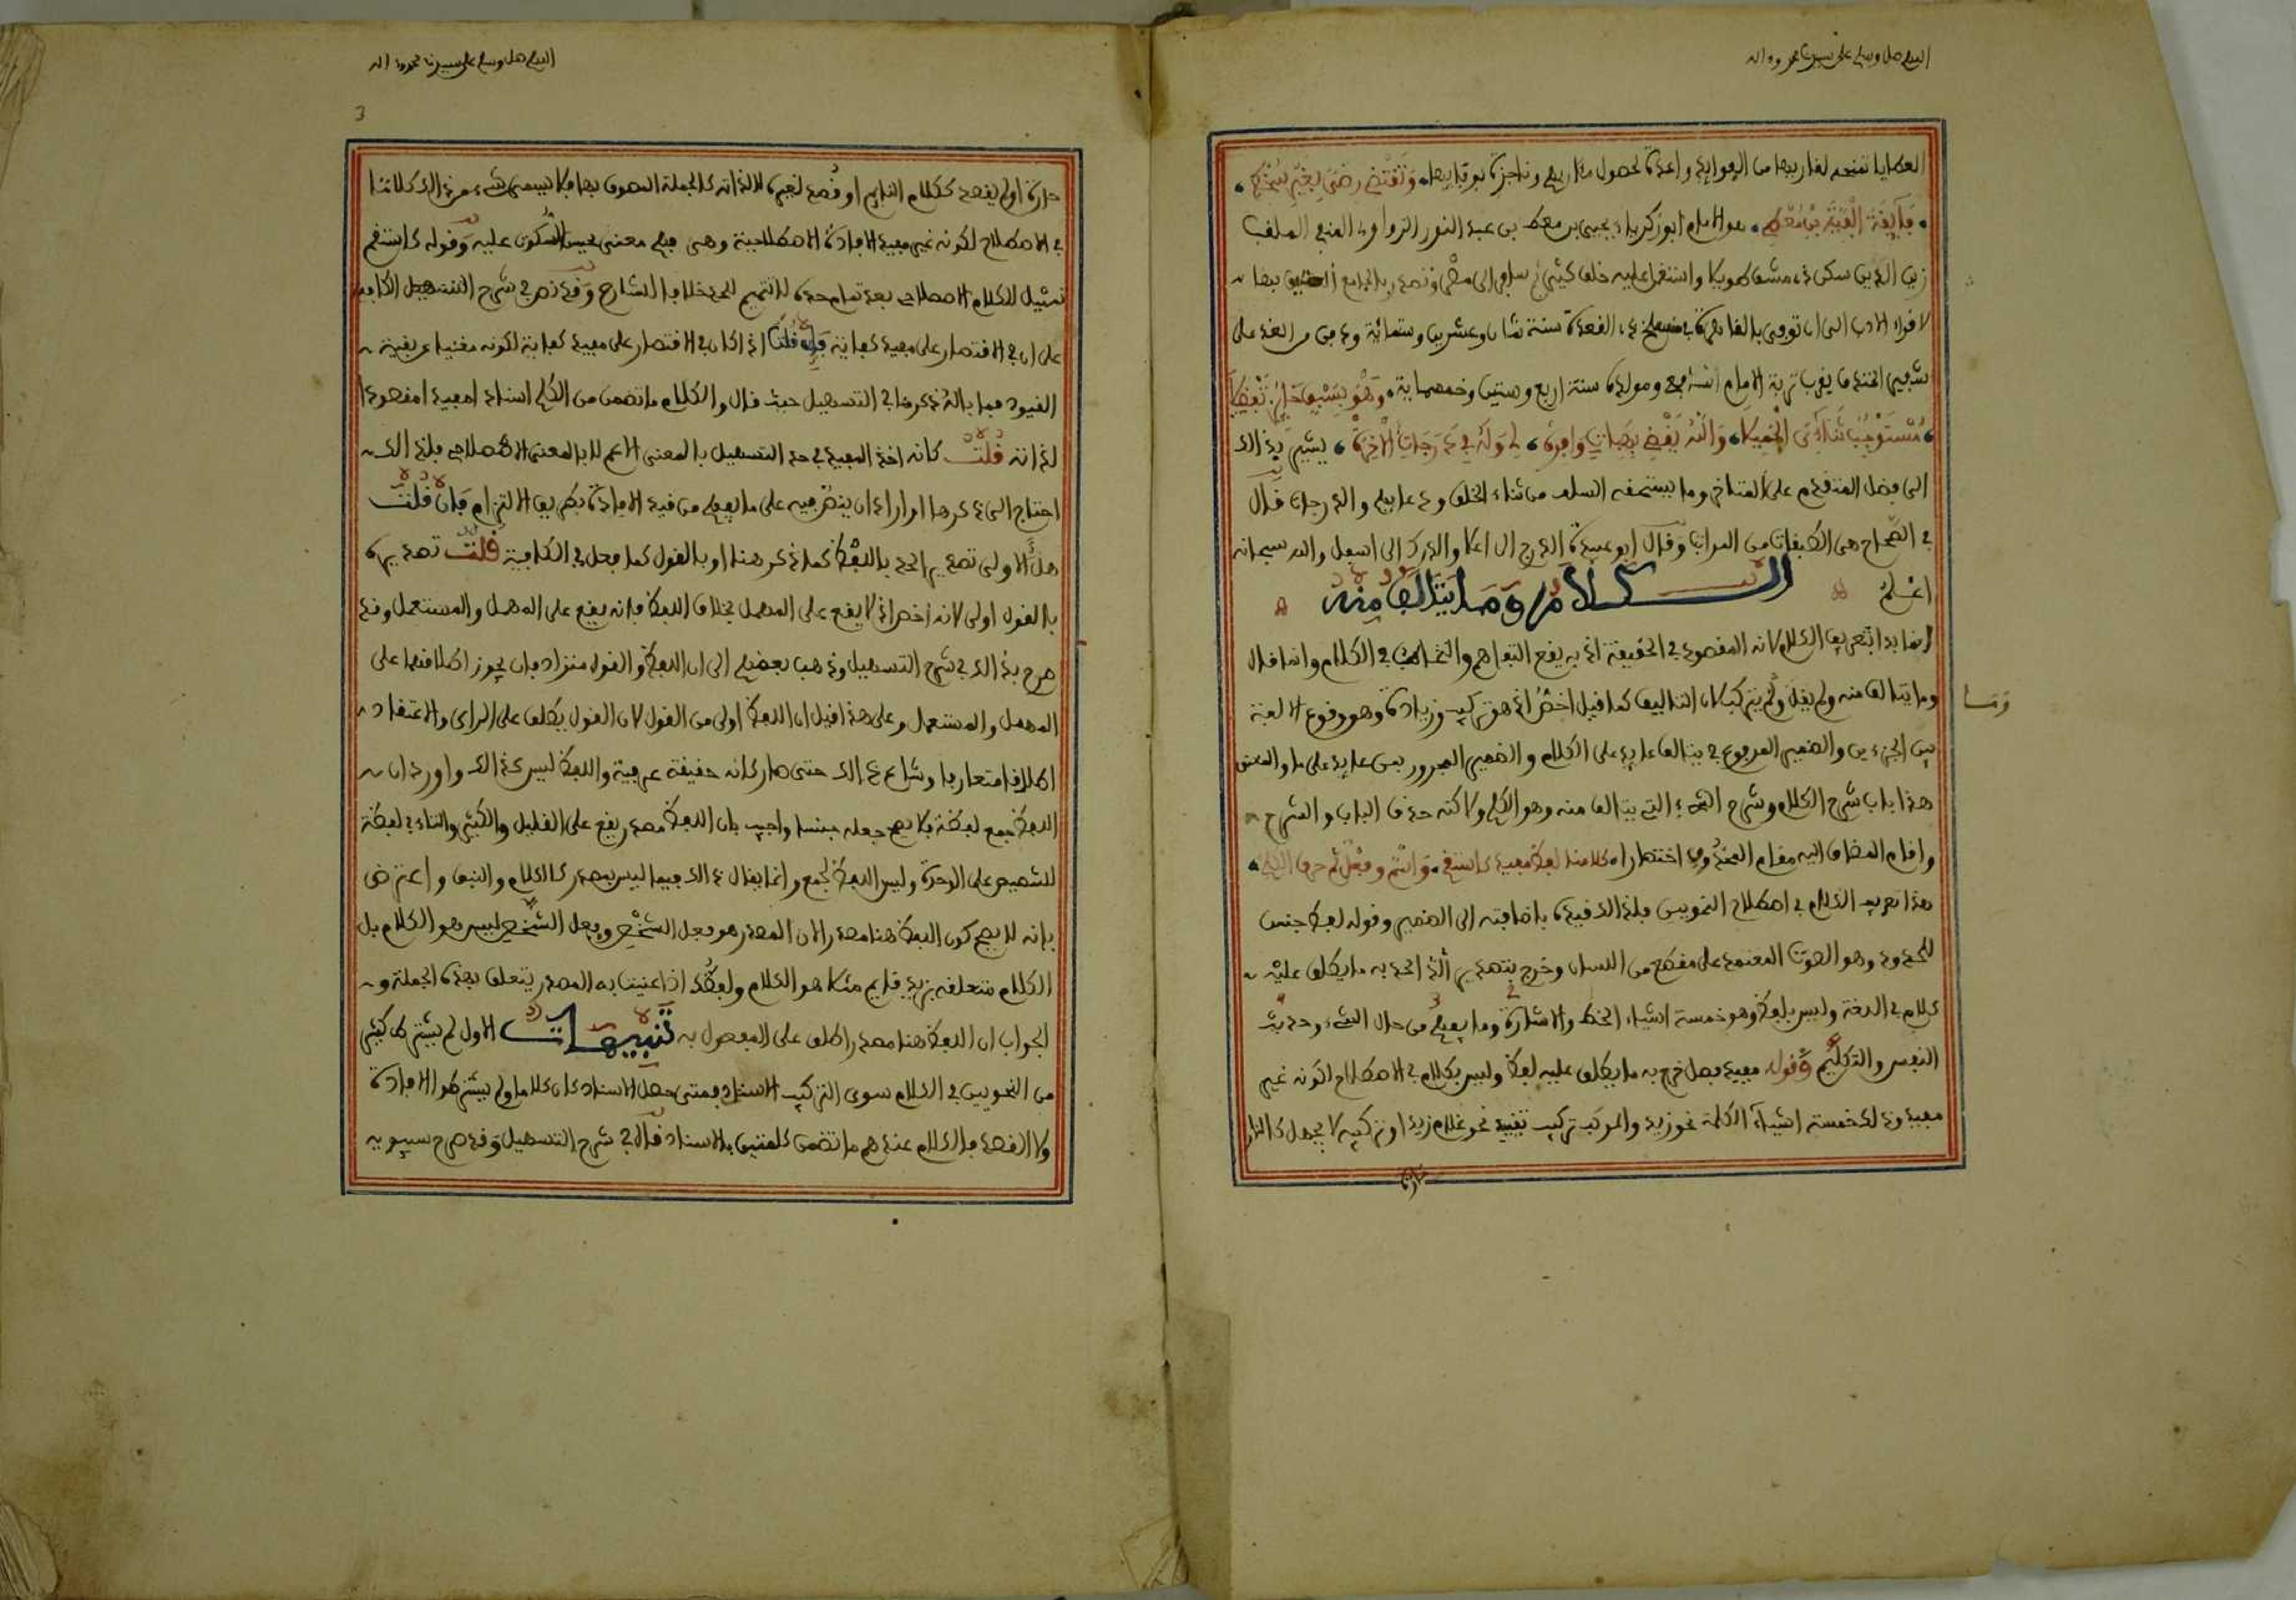 اللهم صل وسلم على سيدنا محمد وءاله
العطايا تمنح لقاريها من الفوايد واعدة بحصول مئاربهم وناجزة بوقايها، وَتَقْتَضِي رِضًى بِغَيْرِ سُخْطِ،
، فَايِقَةً أَلْفِيَّةَ ابْنِ مُعْطِ، هو الامام ابو زكرياء يحيى بن معط بن عبد النور الزواوي الحنفي الملقب
زين الدين سكن دمشق طويلا واشتغل عليه خلق كثير ثم سافر الى مصر وتصدر بالجامع العتيق بها
لاقراء الادب الى ان توفي بالقاهرة في سلخ ذي القعدة سنة ثمان وعشرين وستمائة ودفن من الغد على
شفير الخندق بقرب تربة الامام الشافعي ومولده سنة اربع وستين وخمسماية، وَهْوَ بِسَبْقٍ حَائِزٌ تَفْضِيلَا
، مُسْتَوْجِبٌ ثَنَاءِيَ الْجَمِيلَا، وَاللَّهُ يَقْضِي بِهِبَاتٍ وَافِرَهْ، لِي وَلَهُ فِي دَرَجَاتِ الْآخِرَهْ، يشير بذالك
الى فضل المتقدم على المتاخر وما يستحقه السلف من ثناء الخلف ودعايهم والدرجات قال
في الصحاح هي الطبقات من المراتب وقال ابو عبيدة الدرج الى اعلا والدرك الى اسفل والله سبحانه
اعلم الكلام وما يتالف منه
انما بدا بتعريف الكلام لانه المقصود في الحقيقة اذ به يقع التفاهم والتخاطب في الكلام وانما قال
وما يتالف منه ولم يقل ولم يتركب لان التاليف كما قيل اخص اذ هو تركيب وزيادة وهو وقوع الالفة
وما
بين الجزءين والضمير المرفوع في يتالف عايد على الكلام والضمير المجرور بمن عايد على ما والمعنى
هذا باب شرح الكلام وشرح الشيء الذي يتالف منه وهو الكلم ولاكنه حذف الباب والشرح
واقام المضاف اليه مقام المحذوف اختصارا، كلامنا لفظ مفيد كاستقم، وَاسْمٌ وَفِعْلٌ ثُمَّ حرف الكلم،
هذا تعريف الكلام في اصطلاح النحويين فلذالك قيده باضافته الى الضمير وقوله لفظ جنس
للمحدود وهو الصوت المعتمد على مقطع من اللسان وخرج بتصدير الحد به ما يطلق عليه
كلام في اللغة وليس بلفظ وهو خمسة اشياء الخط والاشارة وما يفهم من حال الشيء وحديث
النفس والتكليم وقوله مفيد فصل خرج به ما يطلق عليه لفظ وليس بكلام في الاصطلاح لكونه غير
مفيد وذلك خمسة اشياء الكلمة نحو زيد والمركب تركيب تقييد نحو غلام زيد او تركيبه لا يجهل كالنار
اللهم صل وسلم على سيدنا محمد وءاله
3
حارة او لم يقصد ككلام النايم او قصد لغيره لا لذاته كالجملة الموصوف بها فلا يسمى شيء من ذالك كلاما
في الاصطلاح لكونه غير مفيد الافادة الاصطلاحية وهي فهم معنى يحسن السكوت عليه وقوله كاستقم
تمثيل للكلام الاصطلاحي بعد تمام حده لا تتميم للحد خلافا للشارح وقد نص في شرح التسهيل
على ان في الاقتصار على مفيد كفاية فان قلت اذا كان في الاقتصار على مفيد كفاية لكونه مغنيا عن بقية
القيود فما باله ذكرها في التسهيل حيث قال والكلام ما تضمن من الكلم اسنادا مفيدا مقصودا
لذاته قلت كانه اخذ المفيد في حد التسهيل بالمعنى الاعم لا بالمعنى الاصطلاحي فلذالك
احتاج الى ذكرها او اراد ان ينص فيه على ما يفهم من قيد الافادة بطريق الالتزام فان قلت
هل الاولى تصدير الحد باللفظ كما ذكر هنا او بالقول كما فعل في الكافية قلت تصديره
بالقول اولى لانه اخص اذ لا يقع على المهمل بخلاف اللفظ فانه يقع على المهمل والمستعمل وقد
صرح بذالك في شرح التسهيل وذهب بعضهم الى ان اللفظ والقول مترادفان يجوز اطلاقهما على
المهمل والمستعمل وعلى هذا قيل ان اللفظ اولى من القول لان القول يطلق على الراى والاعتقاد
اطلاقا متعارفا وشاع ذالك حتى صار كانه حقيقة عرفية واللفظ ليس كذالك واورد ان
اللفظ جمع لفظة فلا يصح جعله جنسا واجيب بان اللفظ مصدر يقع على القليل والكثير والتاء في لفظة
للتنصيص على الوحدة وليس اللفظ بجمع وانما يقال ذالك فيما ليس بمصدر كالكلم والنبق واعترض
بانه لا يصح كون اللفظ هنا مصدرا لان المصدر هو فعل الشخص وفعل الشخص ليس هو الكلام بل
الكلام متعلقه فزيد قايم مثلا هو الكلام ولفظك اذا عنيت به المصدر يتعلق بهذه الجملة و
الجواب ان اللفظ هنا مصدر اطلق على المفعول به تنبيهات الاول لم يشترط كثير
من النحويين في الكلام سوى التركيب الاسنادي فمتى حصل الاسناد كان كلاما ولم يشترطوا الافادة
ولا القصد فالكلام عندهم ما تضمن كلمتين بالاسناد قال في شرح التسهيل وقد صرح سيبويه